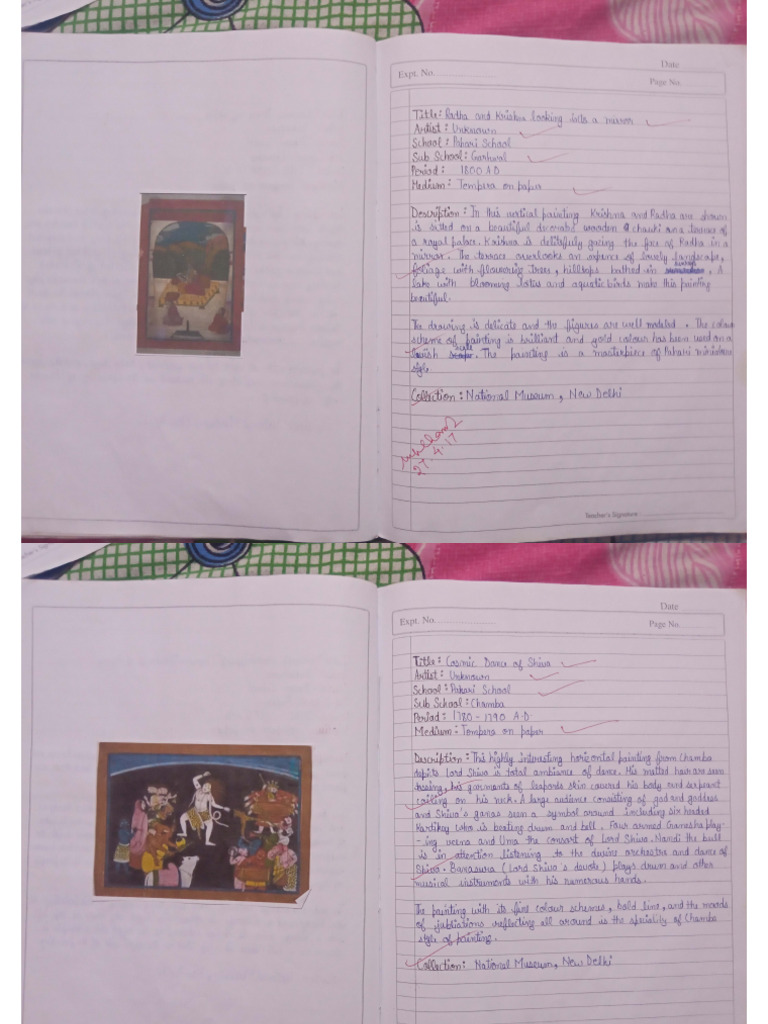 Date
Expt. No.
Page No.
Title: Radha and Krishna looking into a mirror
Artist: Unknown
School: Pahari School
Sub School: Garhwal
Period: 1800 A.D
Medium: Tempera on paper
Description: In this vertical painting Krishna and Radha are shown
is sitted on a beautiful decorative wooden chauki on a terrace of
a royal palace. Krishna is delitefuly gazing the face of Radha in a
mirror. The terrace overlooks an expence of lovely landscape,
foliage with flowering trees, hilltops bathed in sunrays, A
lake with blooming lotus and aquatic birds make this painting
beautiful.
The drawing is delicate and the figures are well modeled. The colour
scheme of painting is brilliant and gold colour has been used on a
lavish scale. The painting is a masterpiece of Pahari miniature
style.
Collection: National Museum, New Delhi
27.4.17
Teacher's Signature
Date
Expt. No.
Page No.
Title: Cosmic Dance of Shiva
Artist: Unknown
School: Pahari School
Sub School: Chamba
Period: 1780-1790 A.D
Medium: Tempera on paper
Description: This highly interesting horicontal painting from Chamba
depits Lord Shiva is total ambiance of dance. His matted hair are seen
his garments of leopards skin covered his body and serpant
coiling on his neck. A large audience consisting of god and goddess
and Shiva's ganas seen a symbol around including six headed
Kartikey who is beating drum and bell. Four armed Ganesha play-
-ing veena and Uma the consort of Lord Shiva. Nandi the bull
is in attention listening to the devine orchestre and dance of
Shiva. Banasura (Lord Shiva's devote) plays drum and other
musical instruments with his numerous hands.
The painting with its fine colour schemes, bold line, and the moods
of jubliations reflecting all around is the speciality of Chamba
style of painting.
Collection: National Museum, New Delhi